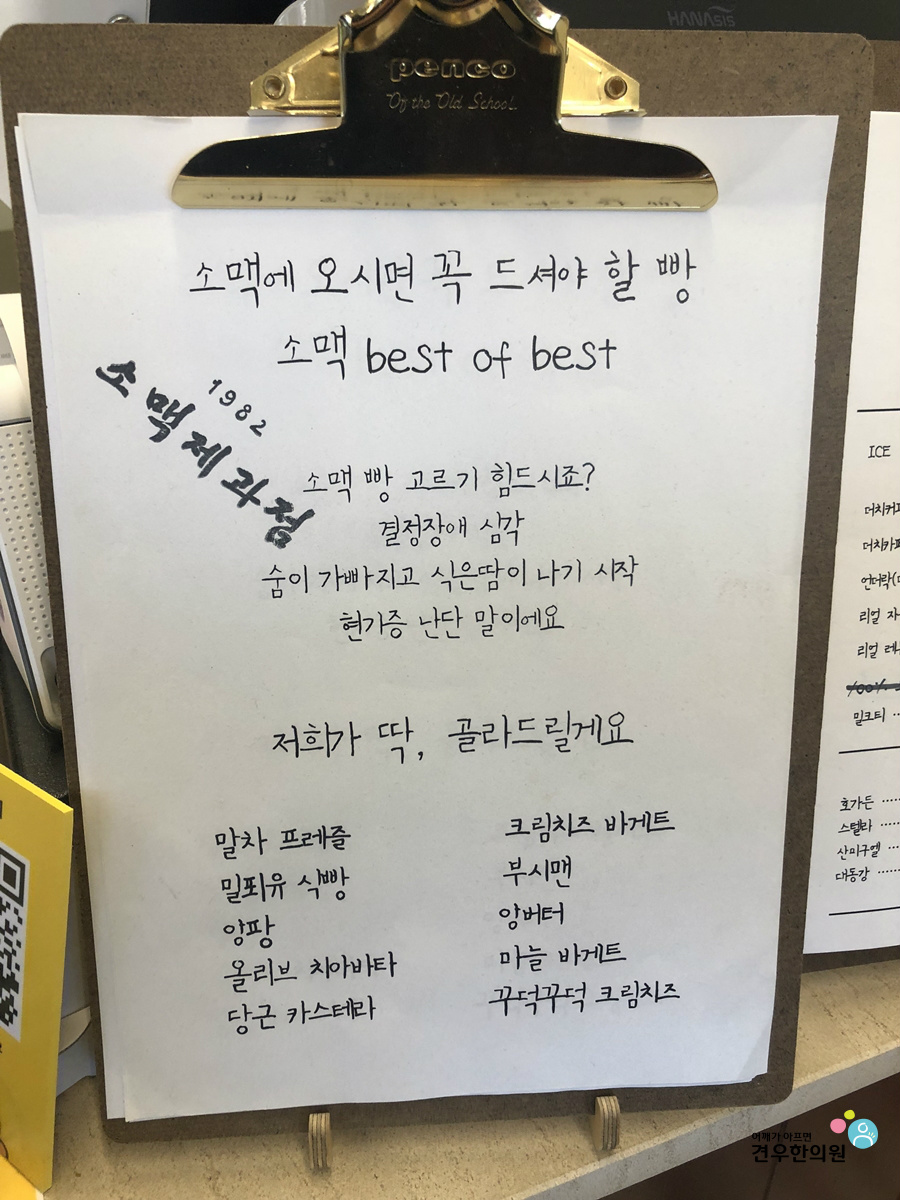 HANAsis
penco
Of the Old School.
소맥에 오시면 꼭 드셔야 할 빵
소맥 best of best
1982
소맥제과점
소맥 빵 고르기 힘드시죠?
결정장애 심각
숨이 가빠지고 식은땀이 나기 시작
현기증 난단 말이에요
저희가 딱, 골라드릴게요
말차 프레즐
밀푀유 식빵
앙팡
올리브 치아바타
당근 카스테라
크림치즈 바게트
부시맨
앙버터
마늘 바게트
꾸덕꾸덕 크림치즈
ICE
더치커피
더치카페
언더락(
리얼 자
리얼 레
밀크티 ..
호가든 ......
스텔라 .....
산미구엘 ...
대동강 .....
어깨가 아프면
견우한의원